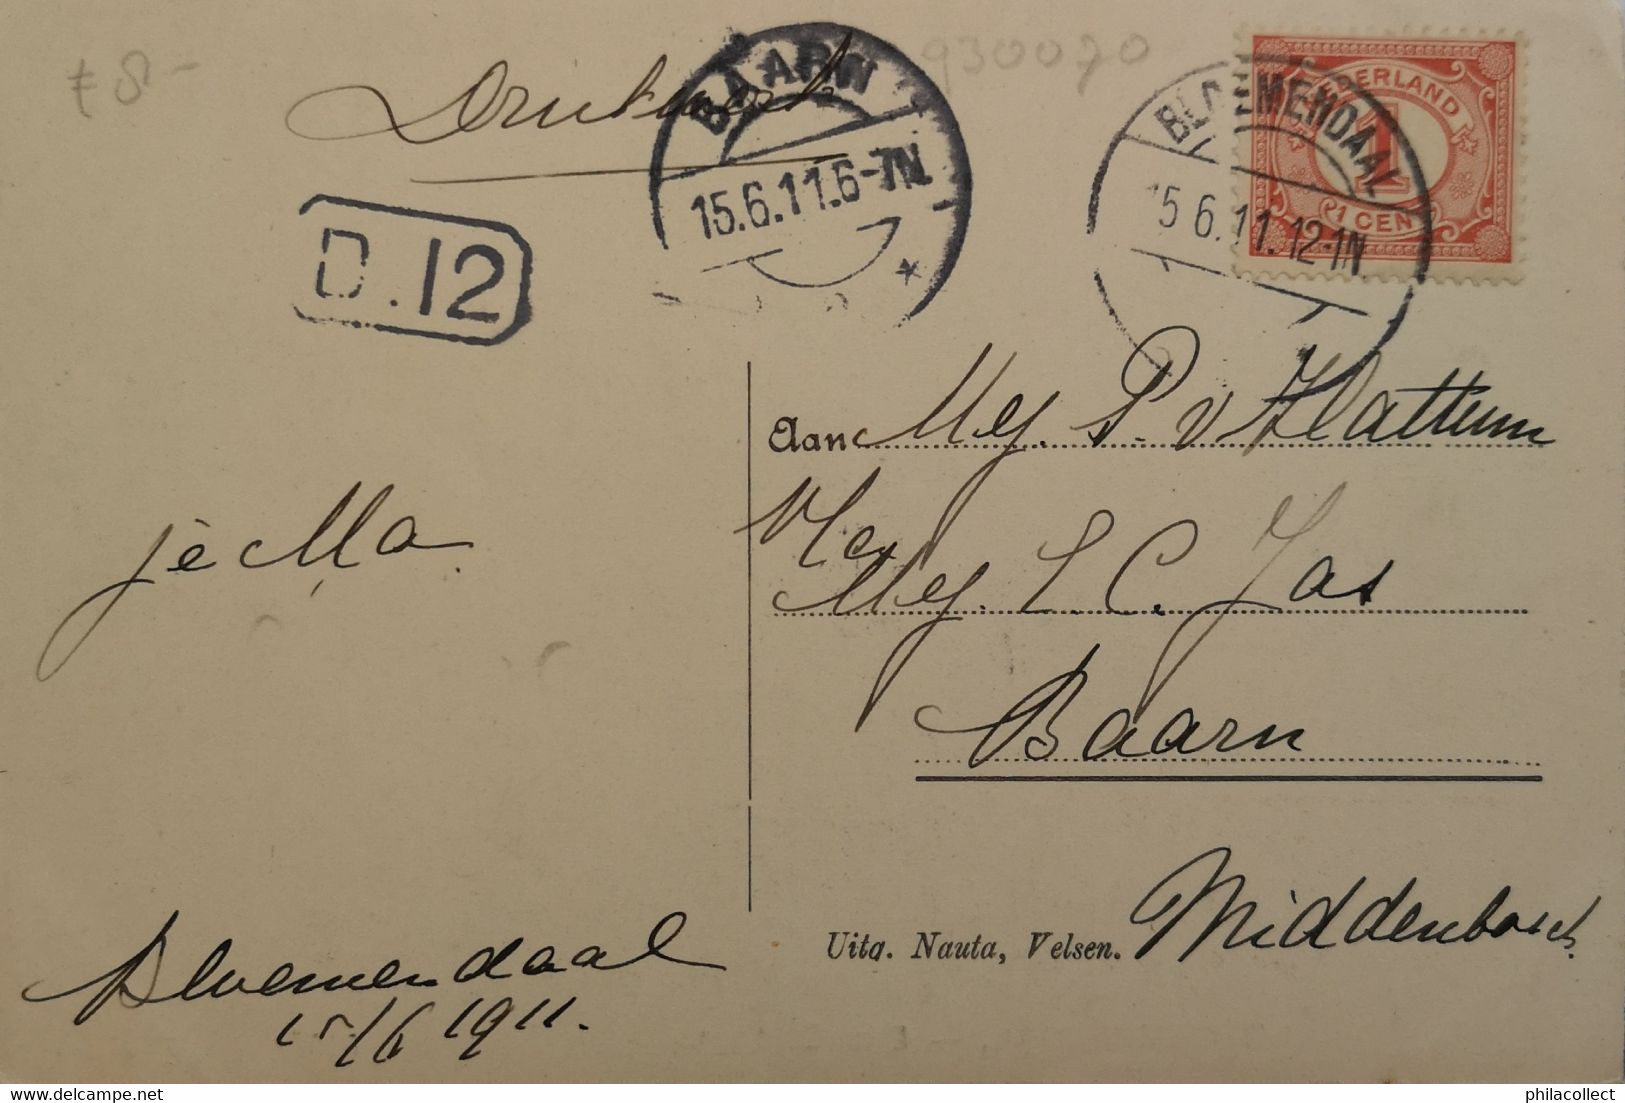 f 8 -
930070
Drukwerk
BAARN
15.6.11.6-7N
BLOEMENDAAL
15.6.11.12-1N
NEDERLAND
1
1 CENT
D.12
Aan Mej. P. v Hattum
Mej. L. C. Jas
Baarn
je Ma.
Bloemendaal
15/6 1911.
Uitg. Nauta, Velsen.
Middenbosch
philacollect